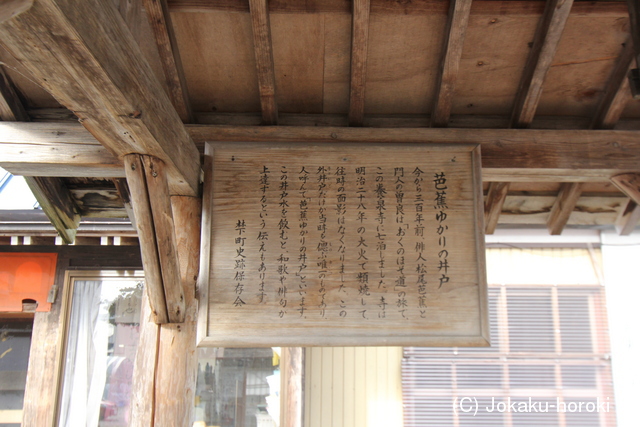 芭蕉ゆかりの井戸
今から三百年前、俳人松尾芭蕉と
門人の曽良は「おくのほそ道」の旅で、
この養泉寺に七泊しました。寺は
明治二十八年の大火で類焼して、
往時の面影はなくなりました。この
外井戸だけが当時を偲ぶ唯一のものであり、
人呼んで「芭蕉ゆかりの井戸」といいます。
この井戸水を飲むと、和歌や俳句が
上達するという伝えもあります。
梺町史跡保存会
(C) Jokaku-horoki